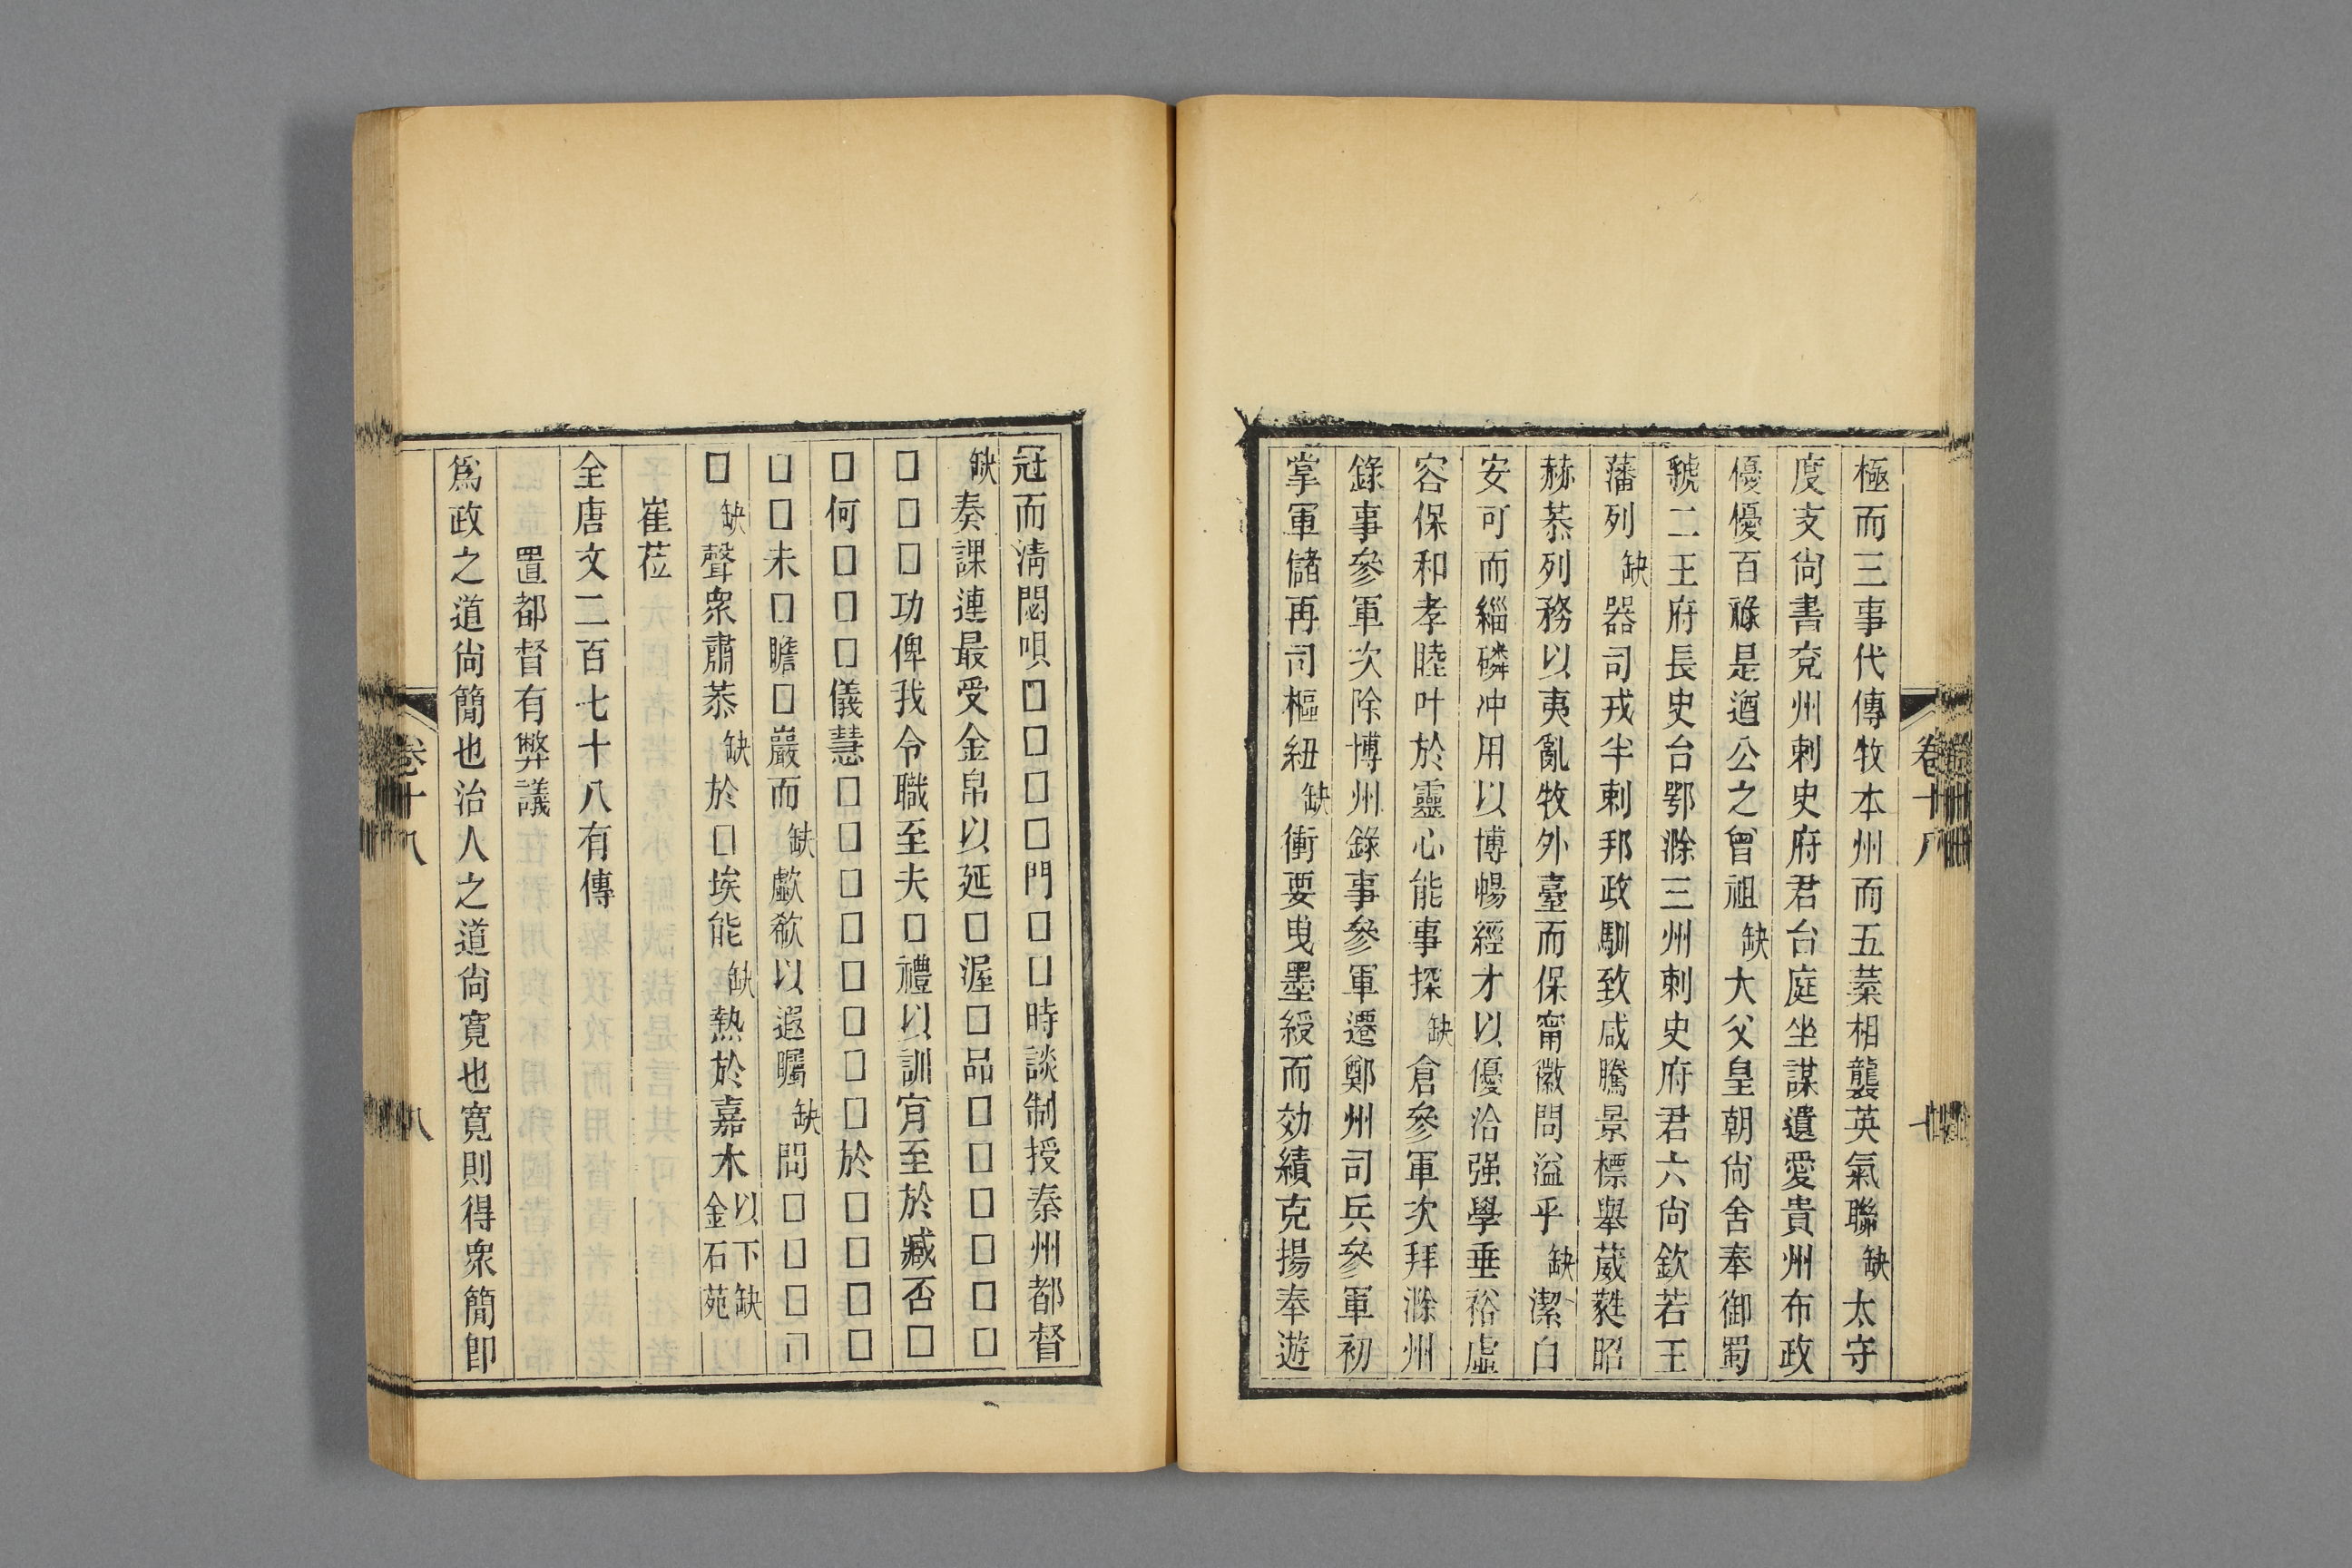 極而三事代傳牧本州而五蘂相襲英氣聯缺太守
度支尙書兗州刺史府君台庭坐謀遺愛貴州布政
優優百祿是遒公之曾祖缺大父皇朝尙舍奉御蜀
虢二王府長史台鄂滁三州刺史府君六尙欽若王
藩列缺器司戎半刺邦政馴致咸騰景標舉葳蕤昭
赫恭列務以夷亂牧外臺而保甯徽問溢乎缺潔白
安可而緇磷沖用以博暢經才以優洽强學垂裕虛
容保和孝睦叶於靈心能事探缺倉參軍次拜滁州
錄事參軍次除博州錄事參軍遷鄭州司兵參軍初
掌軍儲再司樞紐缺衝要曳墨綬而効績克揚奉遊
卷十八
冠而淸閟唄□□□□門□□時談制授秦州都督
缺奏課連最受金帛以延□渥□品□□□□□□
□□□功俾我令職至夫□禮以訓宵至於臧否□
□何□□□儀慧□□□□□□□於□□□□
□□未□瞻□巖而缺歔欷以遐矚缺問□□□□
□缺聲衆肅恭缺於□埃能缺熱於嘉木以下缺金石苑
崔莅
全唐文二百七十八有傳
置都督有弊議
爲政之道尙簡也治人之道尙寬也寬則得衆簡卽
卷十八
八